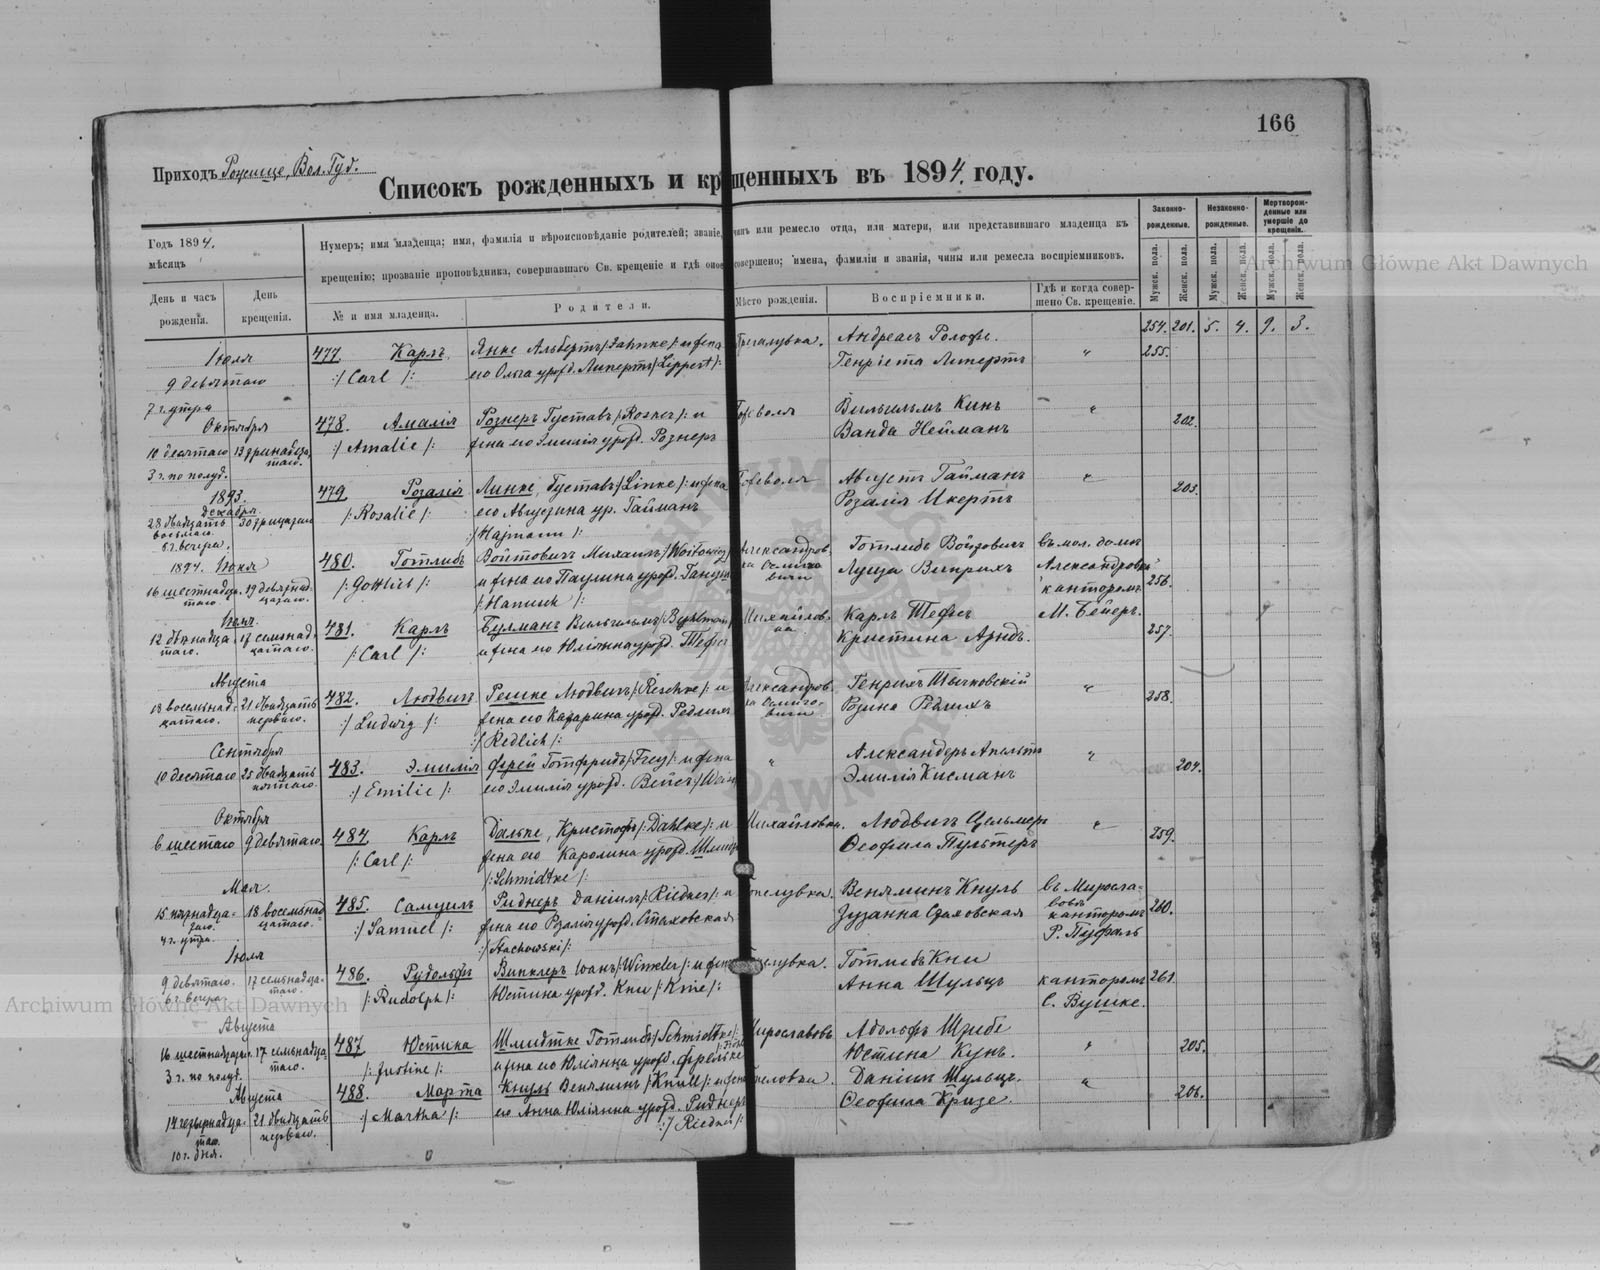 166
Приходъ Рожище, Вол. Губ.
Списокъ рожденныхъ и крещенныхъ въ 1894 году.
Годъ 1894.
мѣсяцъ
Нумеръ; имя младенца; имя, фамилія и вѣроисповѣданіе родителей; званіе, чинъ или ремесло отца, или матери, или представившаго младенца къ
крещенію; прозваніе проповѣдника, совершавшаго Св. крещеніе и гдѣ оное совершено; имена, фамиліи и званія, чины или ремесла воспріемниковъ.
Законно-рожденные.
Незаконно-рожденные.
Мертворожденные или умершіе до крещенія.
День и часъ рожденія.
День крещенія.
№ и имя младенца.
Родители.
Мѣсто рожденія.
Воспріемники.
Гдѣ и когда совершено Св. крещеніе.
Мужск. пола.
Женск. пола.
Мужск. пола.
Женск. пола.
Мужск. пола.
Женск. пола.
254. 201. 5. 4. 9. 3.
Іюля
9 девятаго
7 ч. утра
477. Карлъ
/: Carl :/
Янке Альбертъ /: Jahnke :/ и жена
его Ольга урожд. Липертъ /: Lippert :/
Андреасъ Рольфъ
Генріета Липертъ
"
255.
Октября
10 десятаго 13 тринадцатаго.
3 ч. по полуд.
478. Амалія
/: Amalie :/
Рознеръ Густавъ /: Rosner :/ и
жена его Эмилія урожд. Рознеръ
Вильгельмъ Кинъ
Ванда Нейманъ
"
202.
1893.
Декабря
28 двадцать восьмаго 30 тридцатаго
6 ч. вечера.
479 Розалія
/: Rosalie :/
Линке, Густавъ /: Linke :/ и жена
его Августина ур. Гайманъ
/: Hajmann :/
Августъ Гайманъ
Розалія Икертъ
"
203.
1894. Іюня
16 шестнадцатаго 19 девятнадцатаго.
480. Готлибъ
/: Gottlieb :/
Войтовичъ Михаилъ /: Woitowicz
и жена его Паулина урожд.
/: Hanusch :/
Александровка
Готлибъ Войтовичъ
въ мол. домѣ
Александровка
канторомъ
М. Бейеръ.
256.
12 двѣнадцатаго. 17 семнадцатаго.
481. Карлъ
/: Carl :/
Булманъ Вильгельмъ
и жена его Юліянна урожд. Тефсъ
Михайловка
Карлъ Тефсъ
Кристина Арндъ.
257.
Августа
18 восемнадцатаго. 21 двадцать перваго.
482. Людвигъ
/: Ludwig :/
Решке Людвигъ /: Reschke :/ и
жена его Катарина урожд. Редлихъ
/: Redlich :/
Александровка
Генрихъ Тычковскій
Розина Редлихъ
"
258.
Сентября
10 десятаго 25 двадцать пятаго.
483. Эмилія
/: Emilie :/
Фрей Готфридъ /: Frey :/ и жена
его Эмилія урожд. Вейсъ
"
Александеръ Апельтъ
Эмилія Кисманъ
"
204.
Октября
6 шестаго 9 девятаго.
484. Карлъ
/: Carl :/
Дальке, Кристофъ /: Dahlke :/ и
жена его Каролина урожд. Шмидтке
/: Schmidtke :/
Михайловка.
Людвигъ Цельмеръ
Теофила Пультеръ
"
259.
Мая.
15 пятнадцатаго 18 восемнадцатаго.
4 ч. утра.
485. Самуилъ
/: Samuel :/
Риднеръ Даніилъ /: Riedner :/ и
жена его Розалія урожд. Стаховская
/: Stachowski :/
Веняминъ Кнуль
Зузанна Стаховская
въ Мирославовѣ
канторомъ
Р. Пуфаль
260.
Іюля
9 девятаго. 17 семнадцатаго.
6 ч. вечера.
486. Рудольфъ
/: Rudolph :/
Винклеръ Іоанъ /: Winkler :/ и жена
Юстина урожд. Кни /: Knie :/
Готлибъ Кни
Анна Шульцъ
канторомъ
С. Вушке.
261.
Августа
16 шестнадцатаго. 17 семнадцатаго.
3 ч. по полуд.
487 Юстина
/: Justine :/
Шмидтке Готлибъ /: Schmidtke :/
и жена его Юліянна урожд.
Мирославовъ
Адольфъ Штибе
Юстина Кунъ.
"
205.
Августа
14 четырнадцатаго. 21 двадцать перваго.
10 ч. дня.
488. Марта
/: Martha :/
Кнуль Веняминъ /: Knull :/ и жена
его Анна Юліянна урожд. Риднеръ
/: Riedner :/
Даніилъ Шульцъ.
Теофила Кризе.
"
206.
Archiwum Główne Akt Dawnych
Archiwum Główne Akt Dawnych